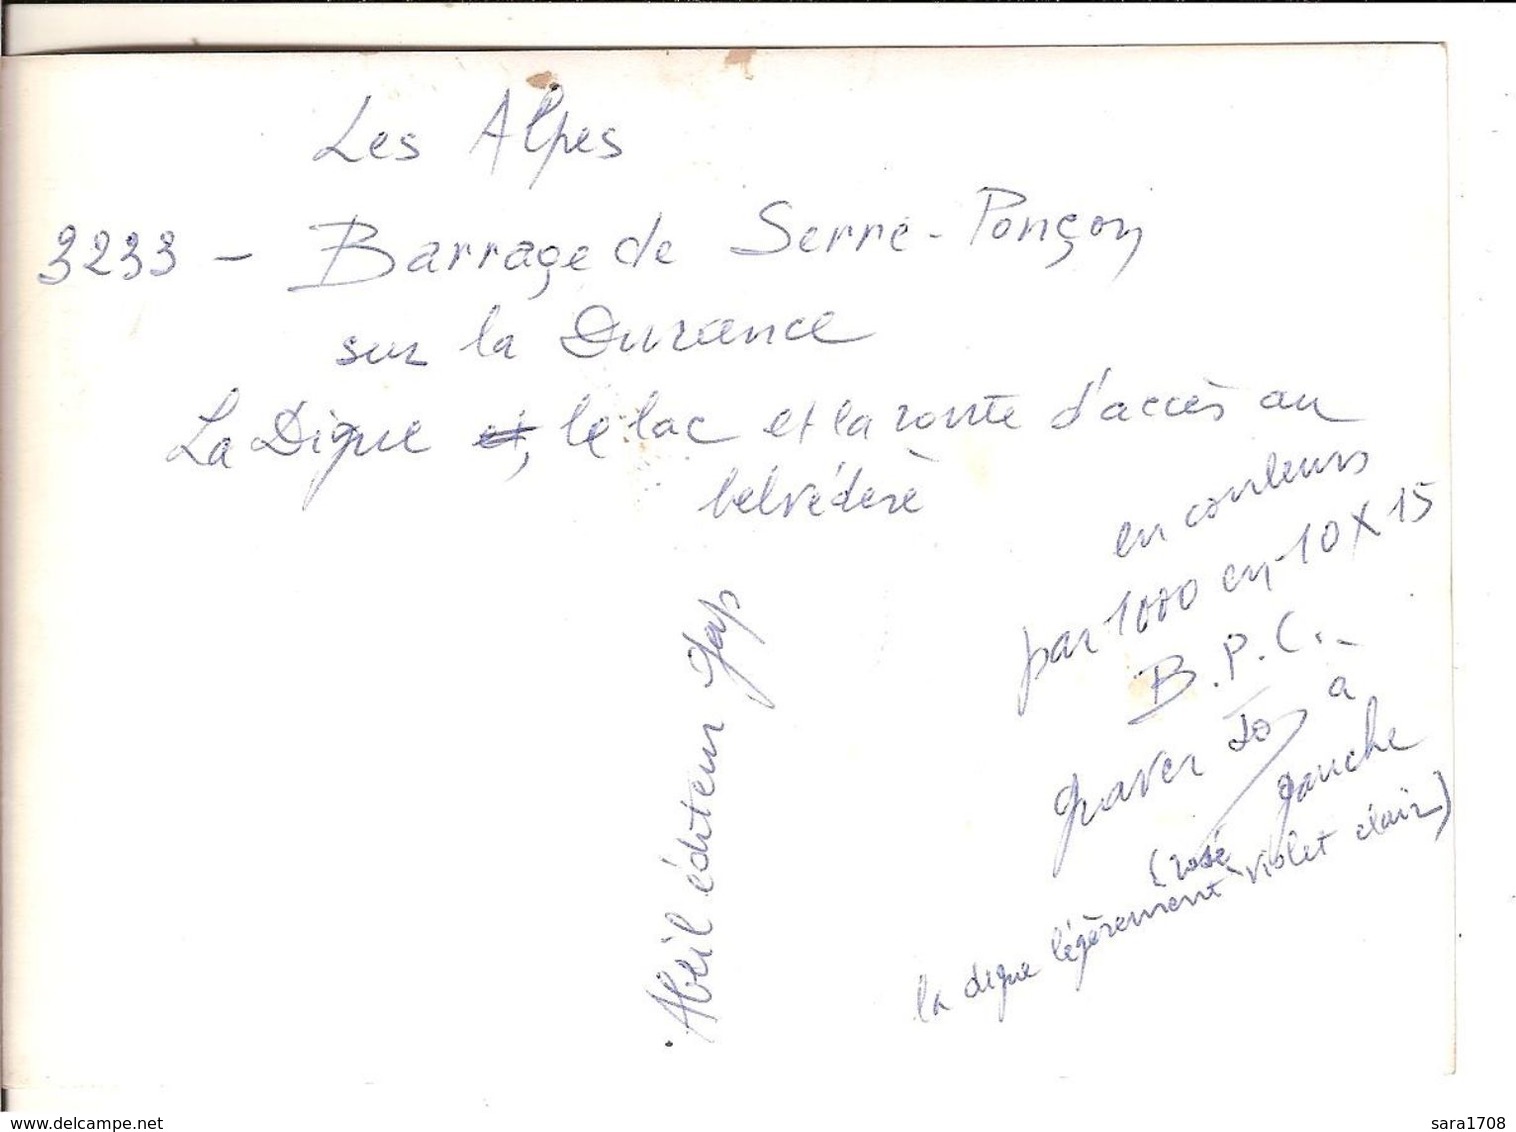 Les Alpes
3233 - Barrage de Serre-Ponçon
sur la Durance
La Digue et, le lac et la route d'accès au
belvédère
en couleurs
par 1000 en 10 X 15
B.P.C.-
graver à
gauche
(rosé
la digue légèrement violet clair)
Abeil éditeur Gap
www.delcampe.net
sara1708